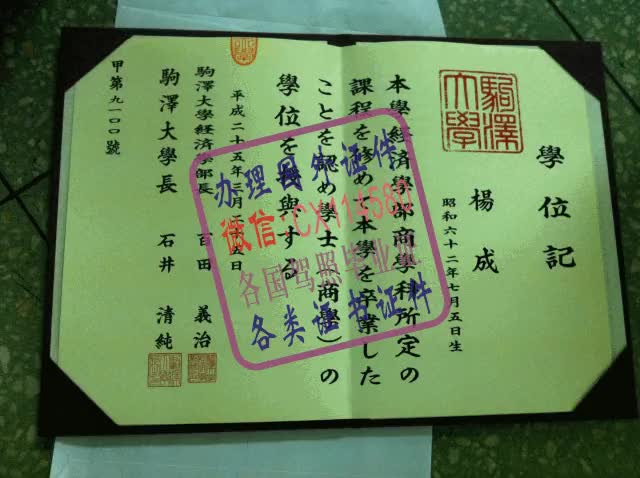 駒澤
大學
學位記
楊成
昭和六十二年七月五日生
本學経済學部商學科所定の
課程を修め本學を卒業した
ことを認め學士(商學)の
學位を授與する
平成二十五年 月 五日
駒澤大学経済學部長 百田 義治
駒澤大學長 石井 清純
甲第九一〇〇號
办理国外证件
微信:CX114580
各国驾照毕业证
各类证书证件